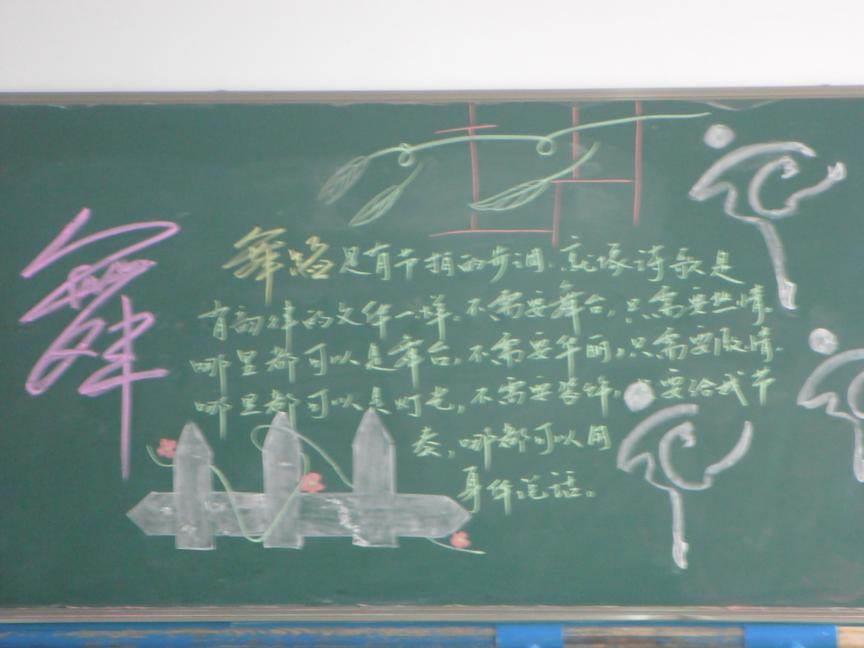 舞
舞蹈是有节拍的步调,就像诗歌是
有韵律的文体一样,不需要舞台,只需要热情,
哪里都可以是舞台,不需要华丽,只需要激情.
哪里都可以是灯光,不需要 要给我节
奏,哪都可以用
身体说话。